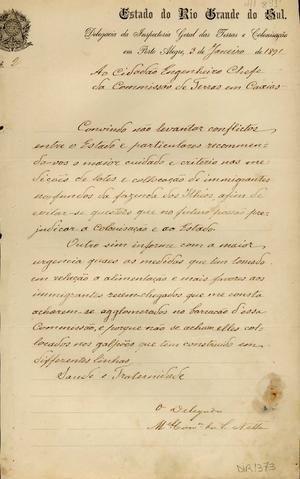 Estado do Rio Grande do Sul.
Delegacia da Inspectoria Geral das Terras e Colonisação
em Porto Alegre, 3 de Janeiro de 1891.
Nº 2
Ao Cidadão Engenheiro Chefe
da Commissão de Terras em Caxias
Convindo não levantar conflictos
entre o Estado e particulares recommen-
do-vos o maior cuidado e criterio nas me-
dições de lotes e collocação de immigrantes
nos fundos da fazenda dos Ilhéos, afim de
evitar-se questões que no futuro possão pre-
judicar a Colonisação e ao Estado.
Outro sim informe com a maior
urgencia quaes as medidas que tem tomado
em relação a alimentação e mais favores aos
immigrantes recemchegados que me consta
acharem-se agglomerados no barracão d'essa
Commissão, e porque não se achão elles col-
locados nos galpões que tem construido em
differentes linhas.
Saude e Fraternidade
O Delegado
DIR1373